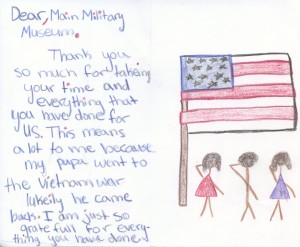 Dear, Main Military
Museum.
Thank you
so much for taking
your time and
everything that
you have done for
US. This means
a lot to me because
my pupa went to
the Vietnam war
lukely he came
back. I am just so
grate full for every-
thing you have done!